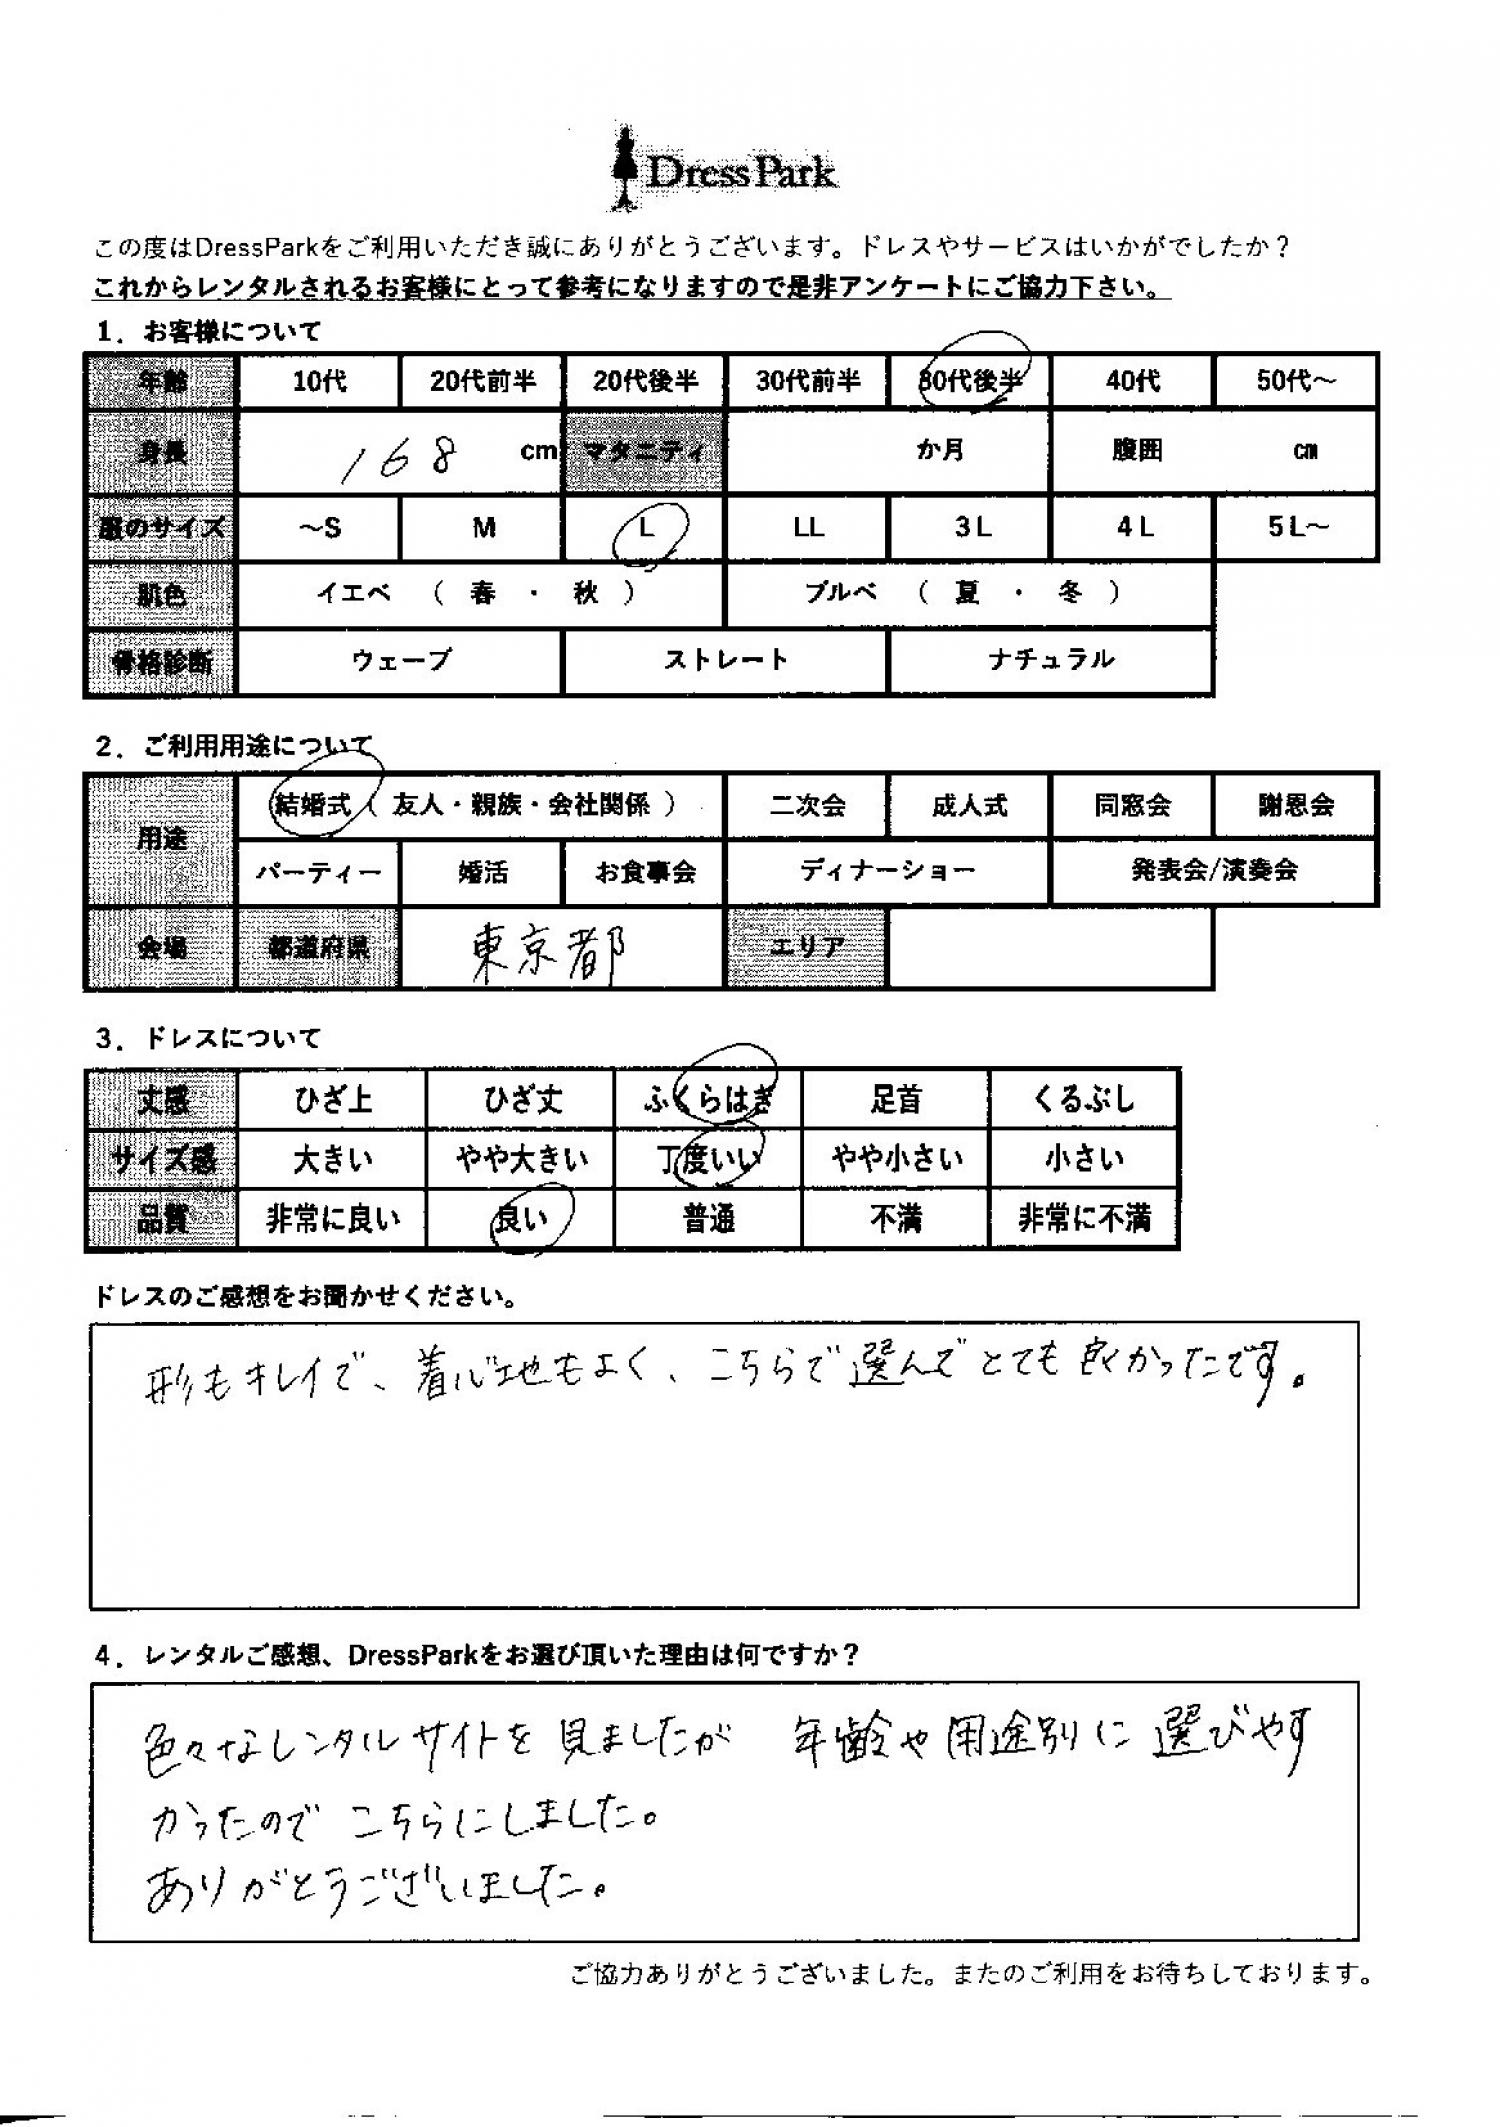 DressPark
この度はDressParkをご利用いただき誠にありがとうございます。ドレスやサービスはいかがでしたか？
これからレンタルされるお客様にとって参考になりますので是非アンケートにご協力下さい。
1．お客様について
年齢 10代 20代前半 20代後半 30代前半 30代後半 40代 50代～
身長 168 cm マタニティ か月 腹囲 ㎝
服のサイズ ～S M L LL 3L 4L 5L～
肌色 イエベ （ 春 ・ 秋 ） ブルベ （ 夏 ・ 冬 ）
骨格診断 ウェーブ ストレート ナチュラル
2．ご利用用途について
用途 結婚式（ 友人・親族・会社関係 ） 二次会 成人式 同窓会 謝恩会
パーティー 婚活 お食事会 ディナーショー 発表会/演奏会
会場 都道府県 東京都 エリア
3．ドレスについて
丈感 ひざ上 ひざ丈 ふくらはぎ 足首 くるぶし
サイズ感 大きい やや大きい 丁度いい やや小さい 小さい
品質 非常に良い 良い 普通 不満 非常に不満
ドレスのご感想をお聞かせください。
形もキレイで、着心地もよく、こちらで選んでとても良かったです。
4．レンタルご感想、DressParkをお選び頂いた理由は何ですか？
色々なレンタルサイトを見ましたが 年齢や用途別に選びやす
かったので こちらにしました。
ありがとうございました。
ご協力ありがとうございました。またのご利用をお待ちしております。